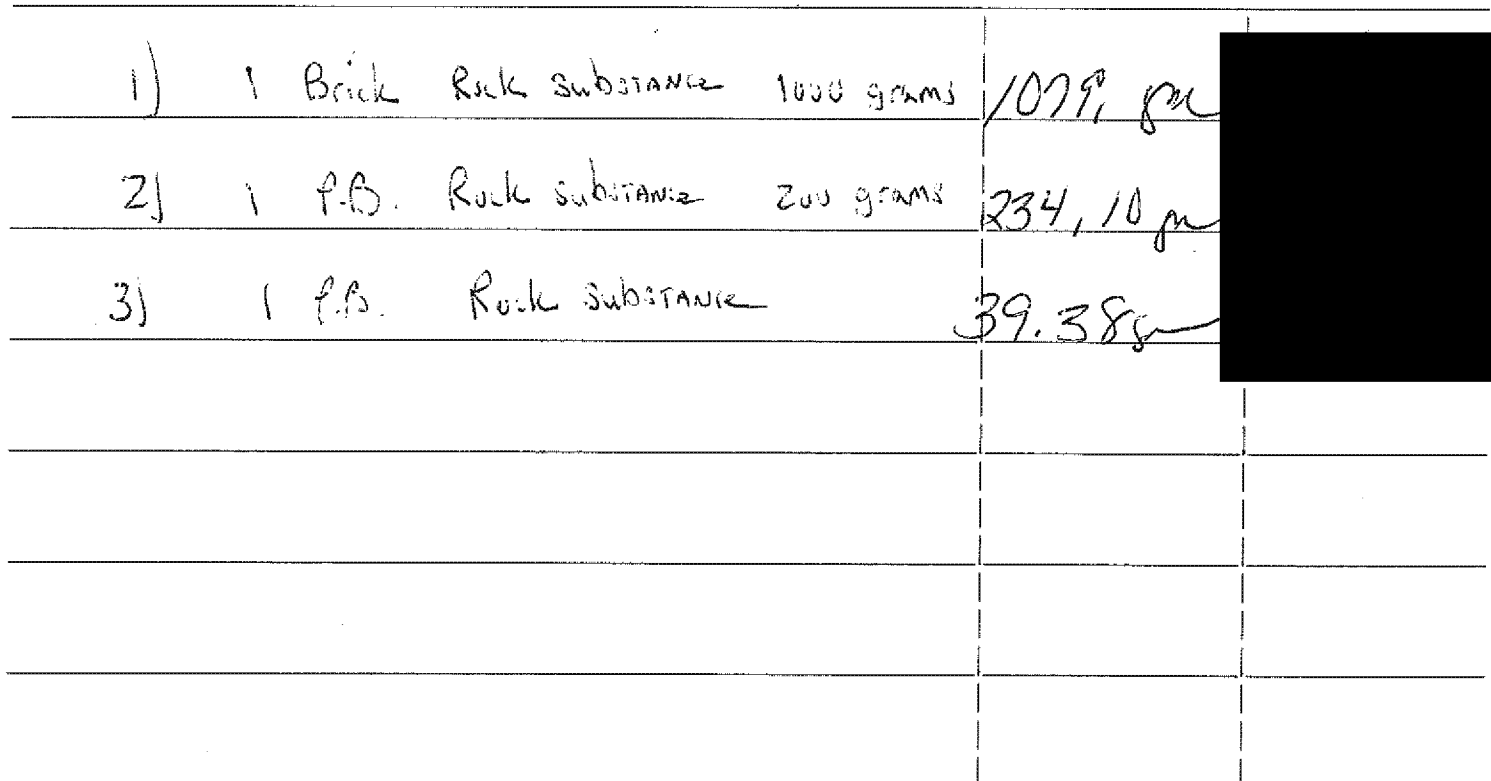 1) 1 Brick Rock substance 1000 grams 1079, gm
2) 1 P.B. Rock substance 200 grams 234,10 gm
3) 1 P.B. Rock substance 39.38 gm